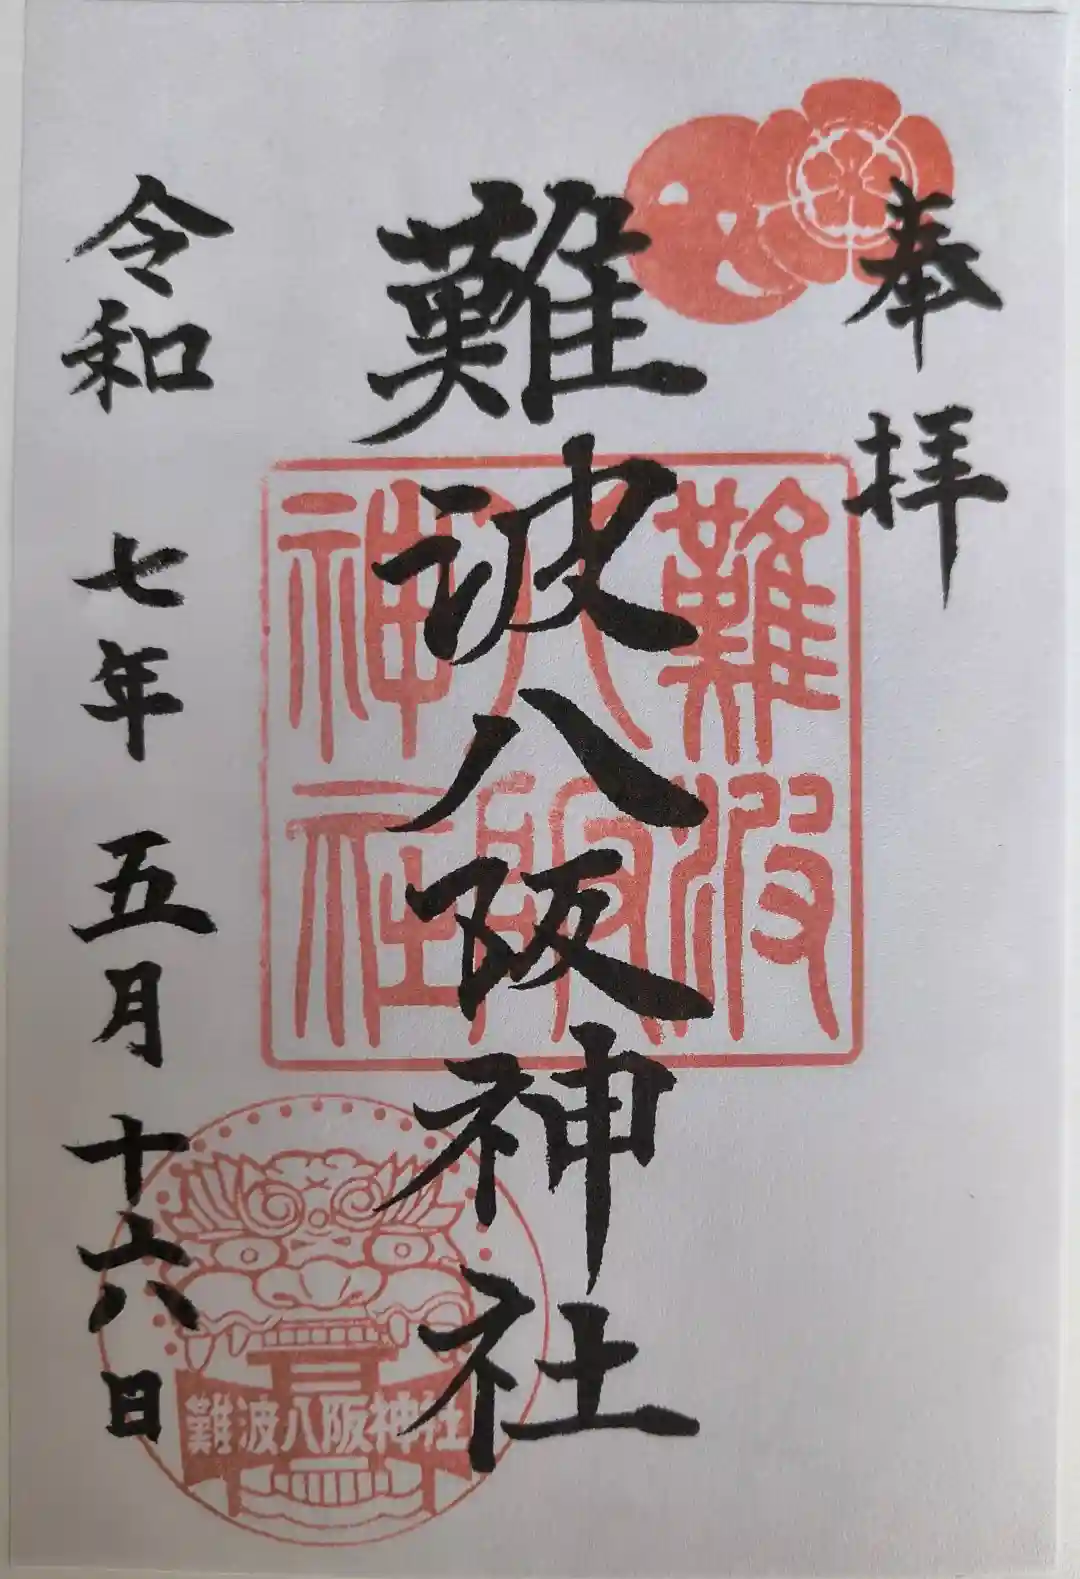 奉拝
難波八阪神社
難波
八阪
神社
令和 七年 五月 十六日
難波八阪神社